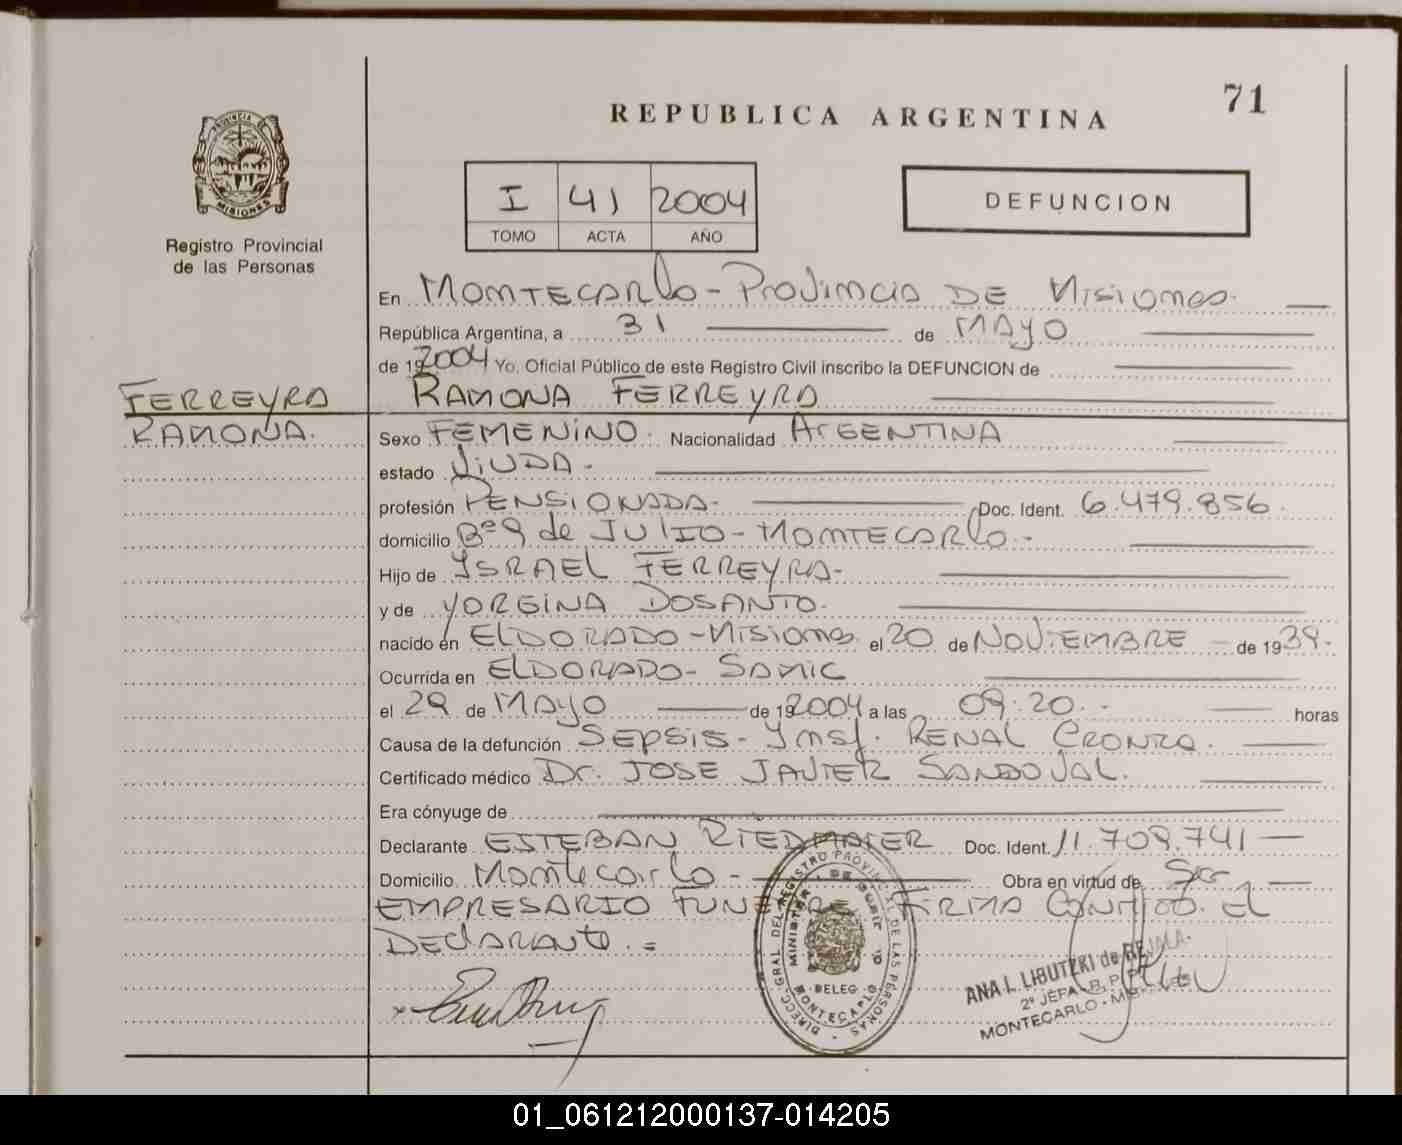 71
REPUBLICA ARGENTINA
PROVINCIA DE
MISIONES
Registro Provincial
de las Personas
I 41 2004
TOMO ACTA AÑO
DEFUNCION
En Montecarlo - Provincia DE Misiones.
República Argentina, a 31 de MAYO
de 192004 Yo, Oficial Público de este Registro Civil inscribo la DEFUNCION de
FERREYRA RAMONA FERREYRA
RAMONA. Sexo FEMENINO. Nacionalidad ARGENTINA
estado Viuda.
profesión PENSIONADA. Doc. Ident. 6.479.856.
domicilio Bº 9 de JULIO - MONTECARLO.-
Hijo de YSRAEL FERREYRA-
y de YORGINA DOSANTO.
nacido en ELDORADO - Misiones el 20 de NOVIEMBRE de 1939.
Ocurrida en ELDORADO - SAMIC
el 29 de MAYO de 192004 a las 09.20.- horas
Causa de la defunción SEPSIS - Ynsf. RENAL CRONICA.
Certificado médico Dr. JOSE JAVIER SANDOVAL.
Era cónyuge de
Declarante ESTEBAN RIEDMAIER Doc. Ident. 11.709.741
Domicilio Montecarlo - Obra en virtud de Ser
EMPRESARIO FIRMA CONMIGO. EL
DECLARANTE.=
DIRECC. GRAL DEL REGISTRO PROVINCIAL DE LAS PERSONAS
DELEG
MONTECARLO
ANA I. LIBUTZKI de REJALA
2º JEFA R. P. P.
MONTECARLO - M
01_061212000137-014205